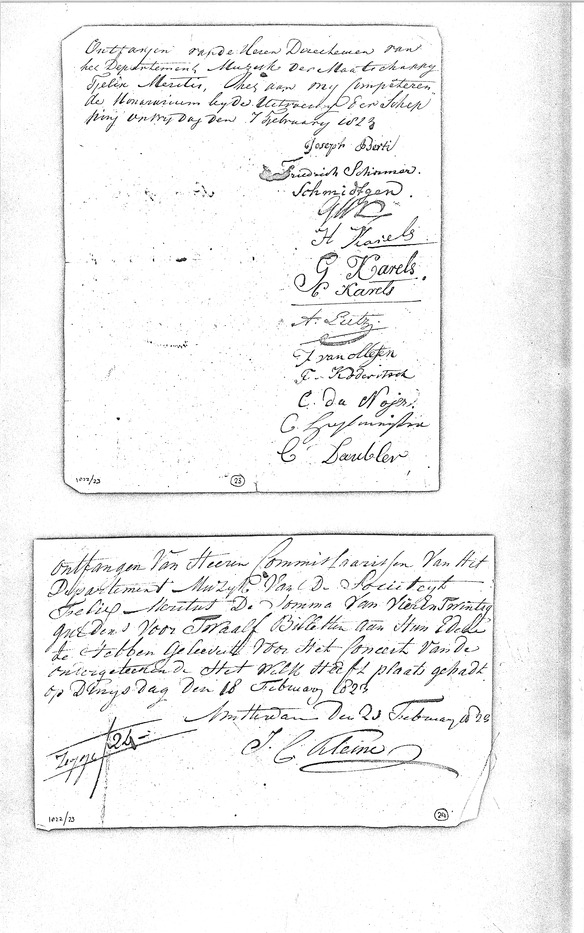 Ontfangen van de Heren Directeuren van
het Departement Muzyk der Maatschappy
Felix Meritis, het aan my Competeren-
de Honorarium by de Uitvoering Der Schep
ping op Vrydag den 7 February 1823
Joseph Berti
Friedrich Schirmer.
Schmidtgen.
H Karels
G Karels.
P Karels
A. Lutz.
J van Olffen
C. du
C
C Daubler
1022/23
23
ontfangen Van Heeren Commissarissen Van Het
Departement Muzyk Van De Societeyt
Felix Meritus De Somma Van Vier En Twintig
guldens Voor Twaalf Billetten aan Hun Edele
te Hebben Geleevert Voor Het Concert Van de
ondergeteekende Het Welk Heeft plaats gehadt
op Dingsdag Den 18 February 1823
Amsterdam Den 23 February 1823
Zegge ƒ 24-
J. C. Kleine
1022/23
24